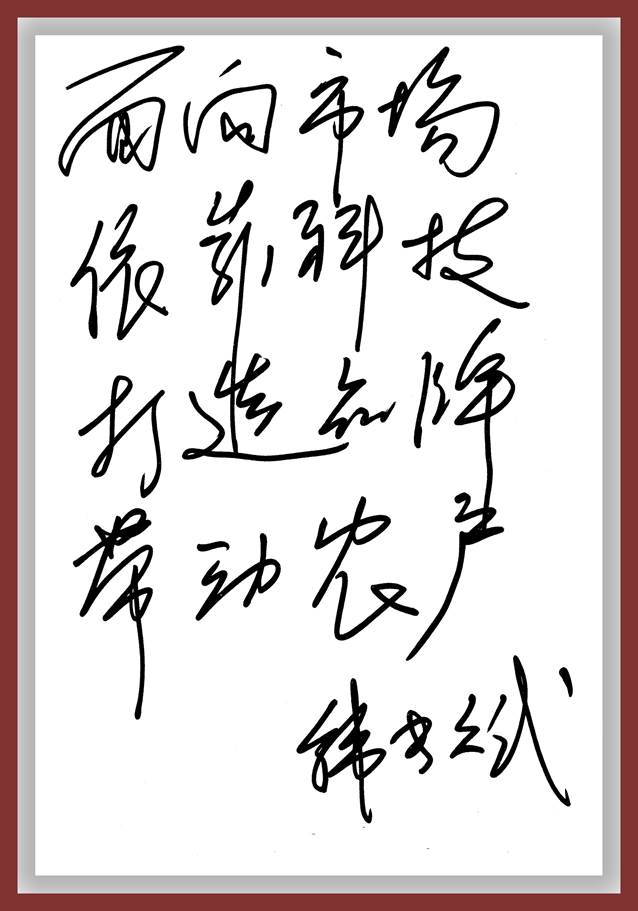 面向市场
依靠科技
打造品牌
带动农户
韩